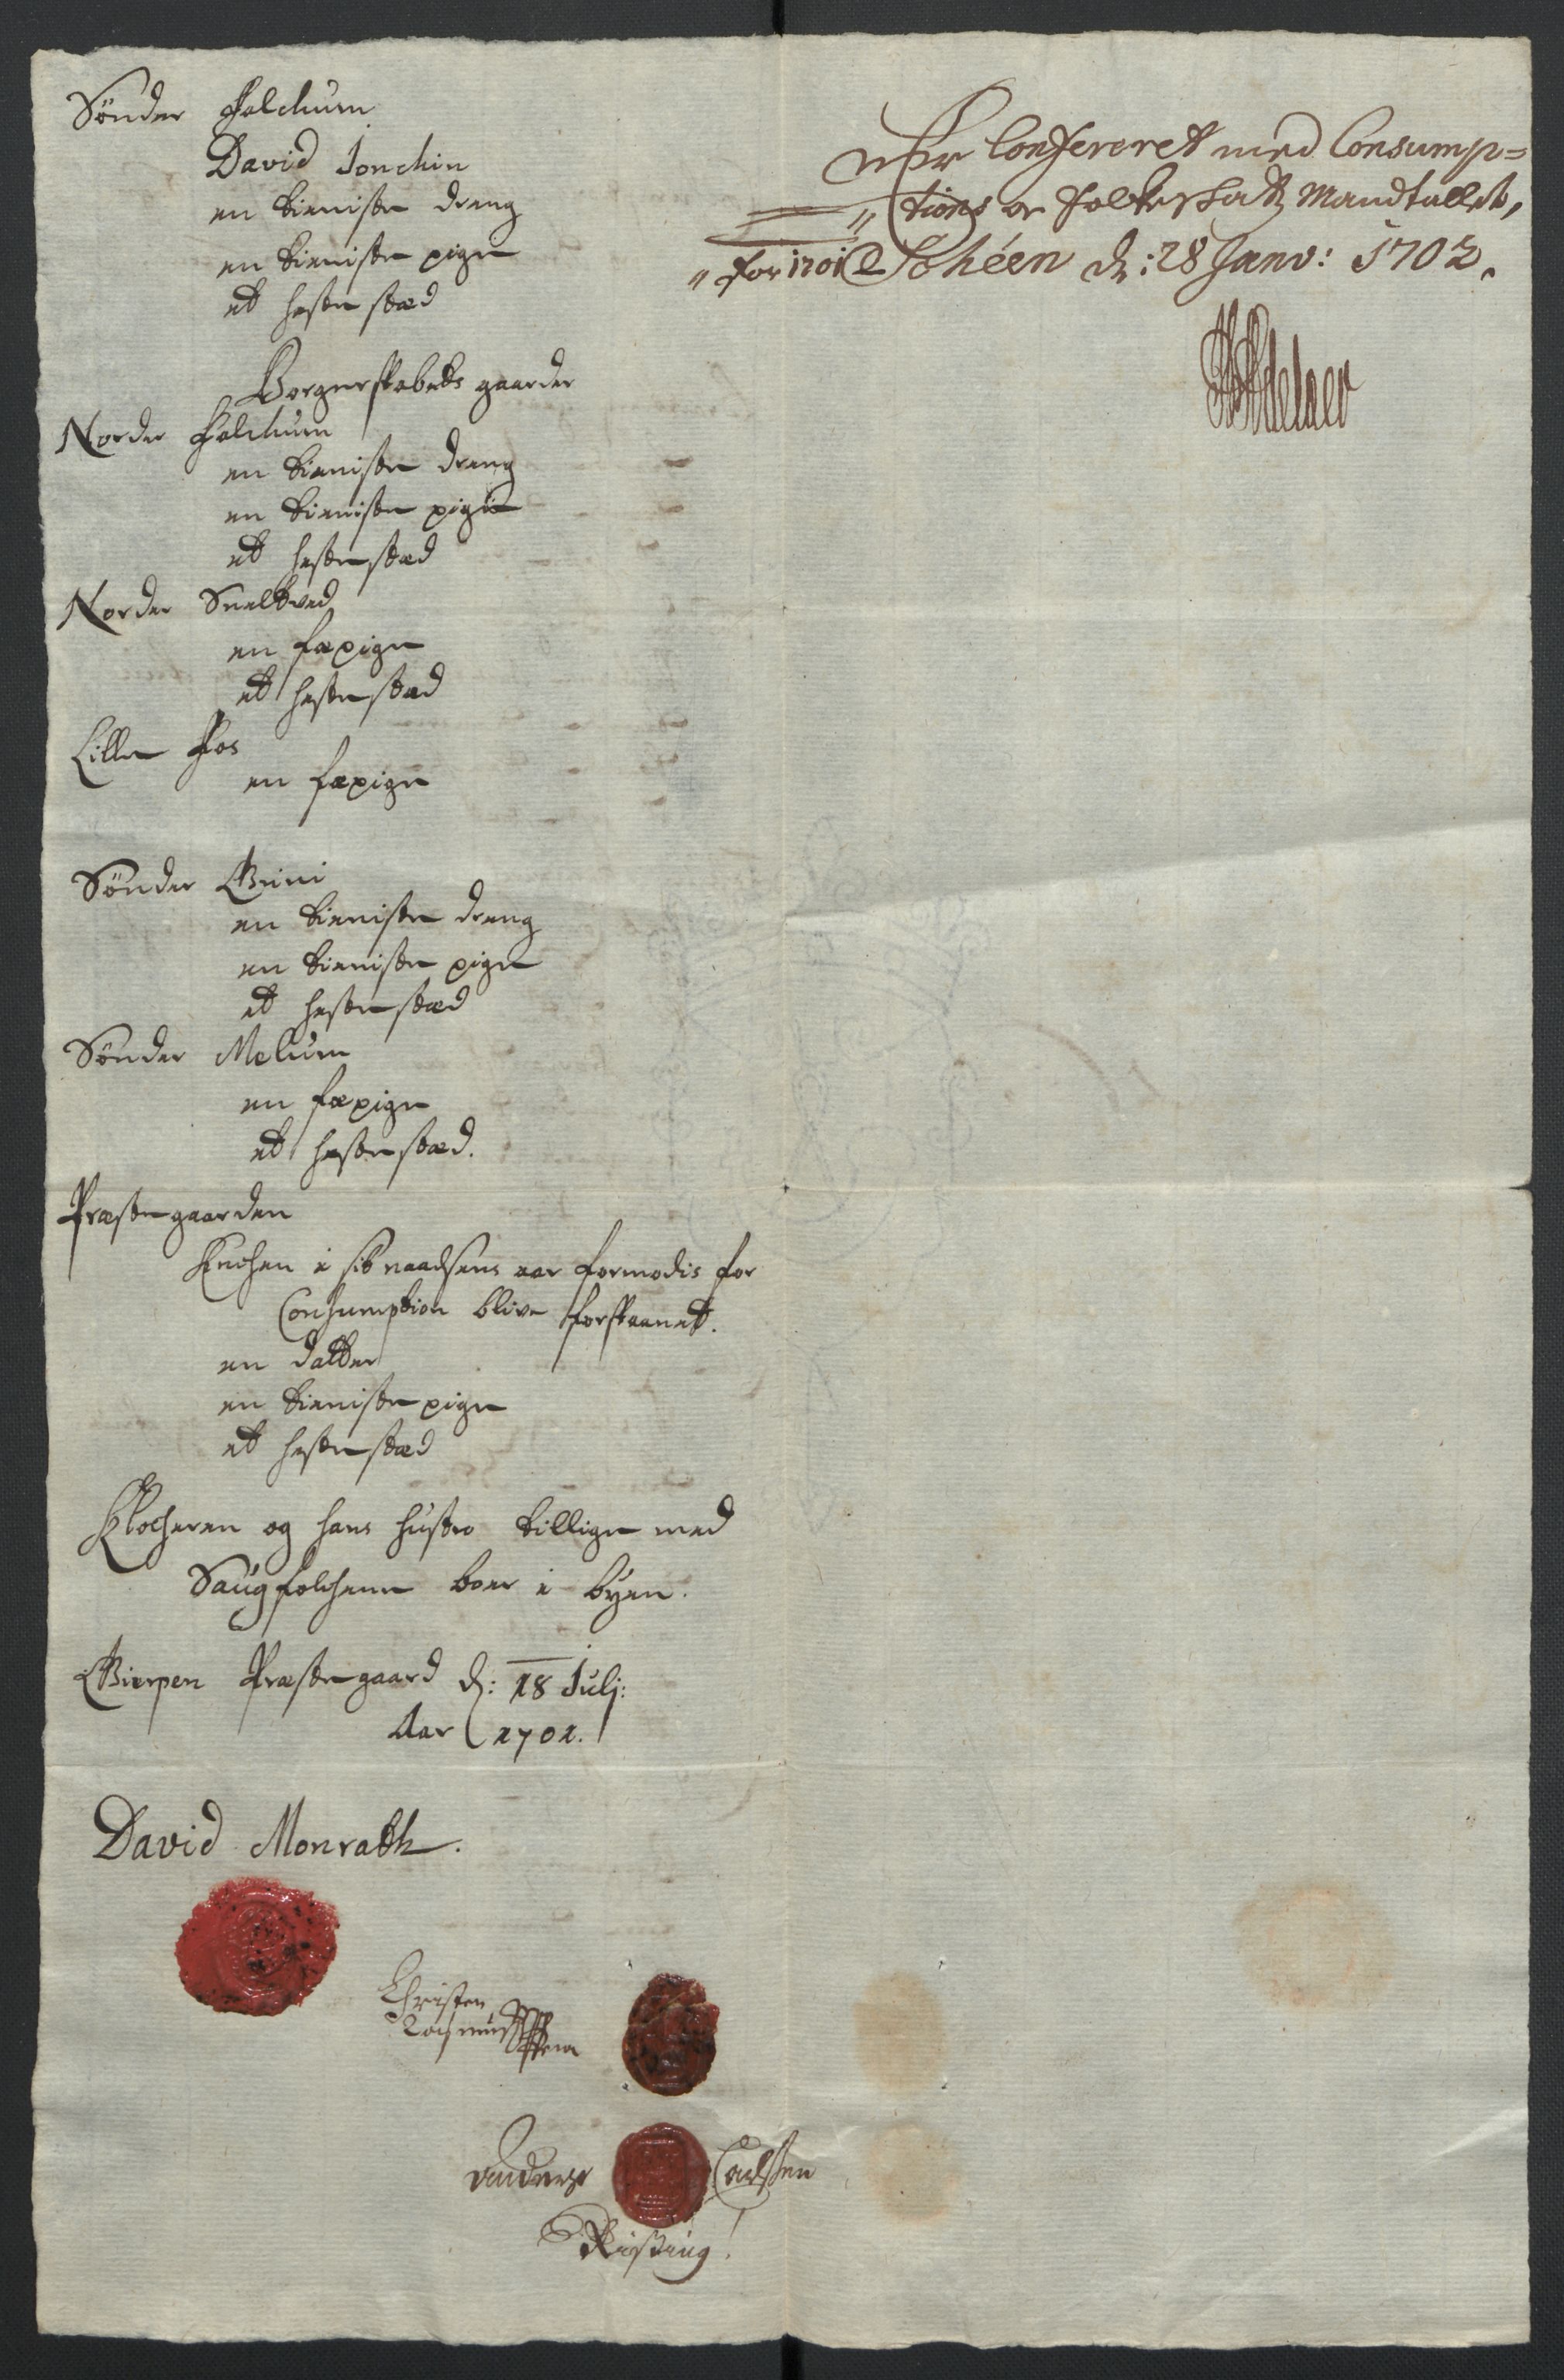 Sönder Falchum
David Jonchin
en tieniste dreng
en tieniste pige
et hestestæd
Borgerskabets gaarder
Norder Falchum
en tieniste dreng
en tieniste pige
et hestestæd
Norder Sneltved
en fæpige
et hestestæd
Lille Fos
en fæpige
Sönder Brini
en tieniste dreng
en tieniste pige
et hestestæd
Sönder Melum
en fæpige
et hestestæd.
Præstegaarden
Enchen i sit naadsens aar formodis for
Consumption blive forskaanet.
en datter
en tieniste pige
et hestestæd
Klocheren og hans hustro tillige med
Saugfolchene boer i byen.
Gierpen Præstegaard d: 18 Julj:
Aar 1701.
David Monrath.
Christen
Rasmussen
Anders Carlsen
Riising
Er Confereret med Consump=
tions og Folkeskatz Mandtallet,
for 1701 Schéen d: 28 Janv: 1702.
Adelaer